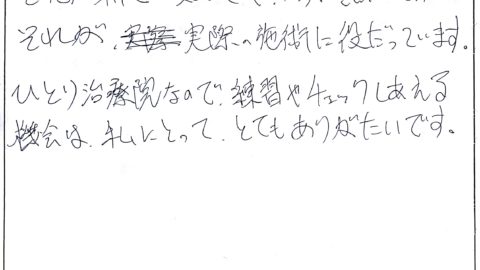 それが、実際の施術に役だっています。
ひとり治療院なので、練習やチェックしあえる
機会は、私にとって、とてもありがたいです。